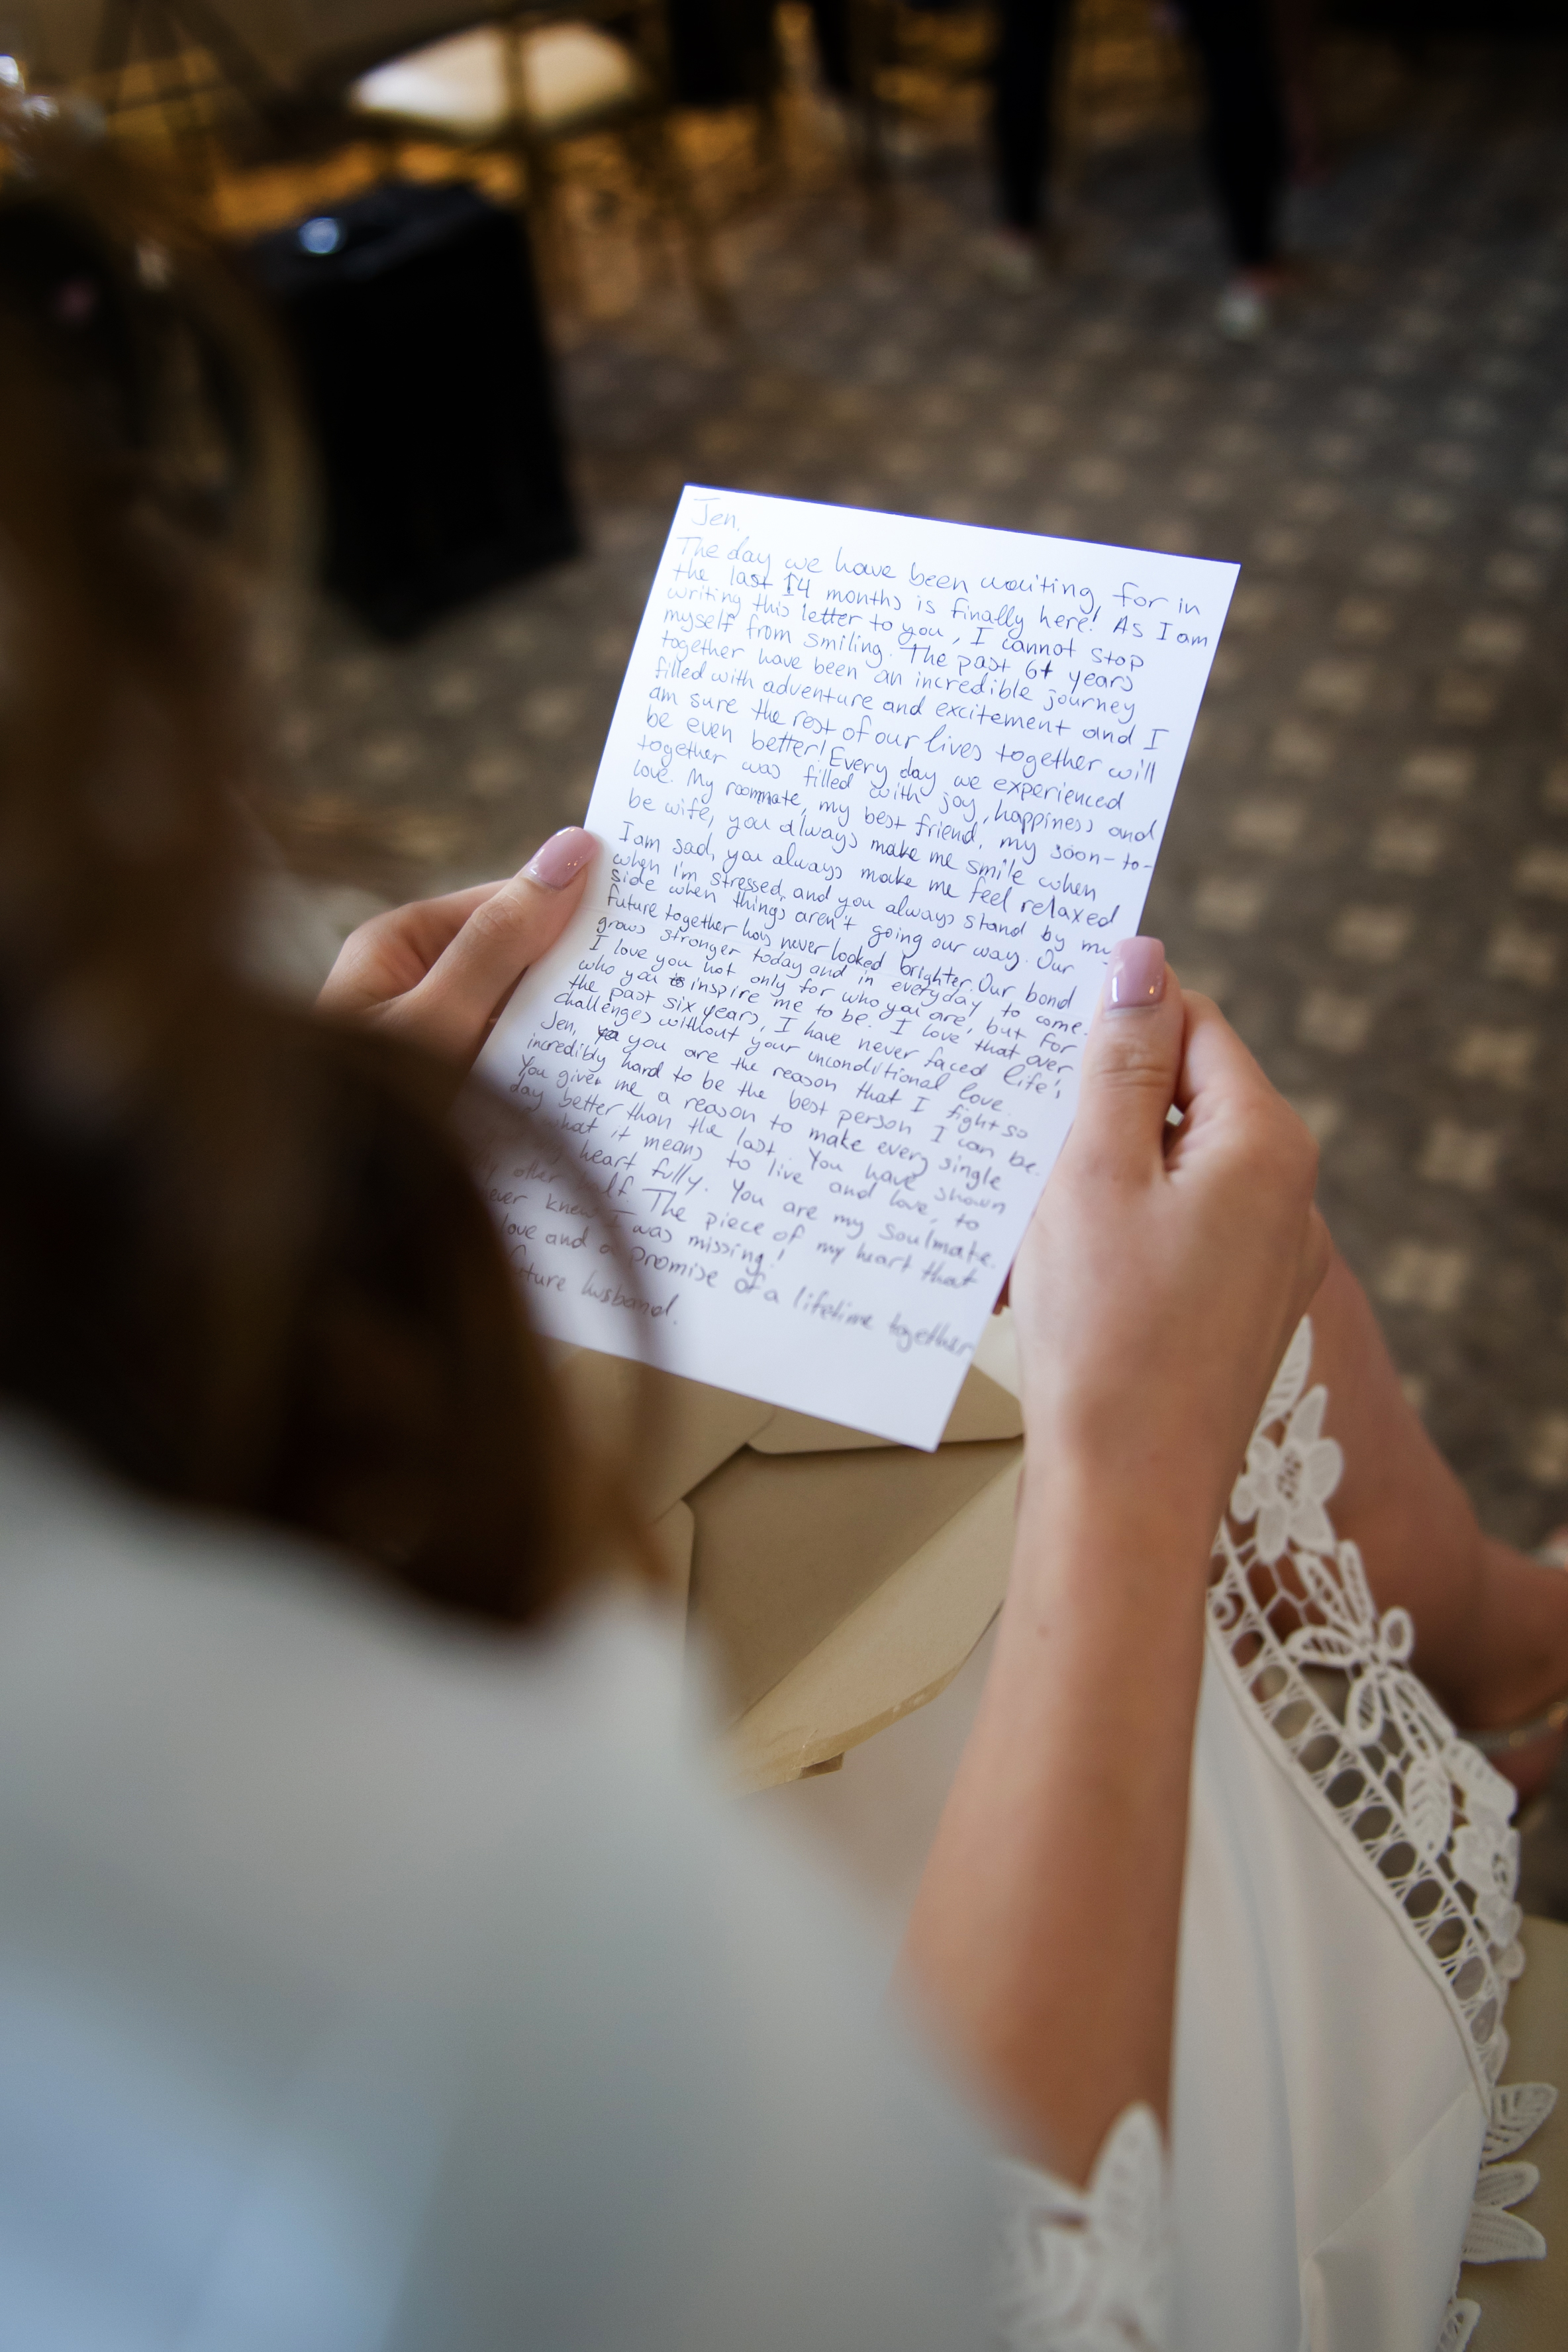 Jen,
The day we have been waiting for in
the last 14 months is finally here! As I am
writing this letter to you, I cannot stop
myself from smiling. The past 6+ years
together have been an incredible journey
filled with adventure and excitement and I
am sure the rest of our lives together will
be even better! Every day we experienced
together was filled with joy, happiness and
love. My roommate, my best friend, my soon-to-
be wife, you always make me smile when
I am sad, you always make me feel relaxed
when i'm stressed, and you always stand by my
side when things aren't going our way. Our
future together has never looked brighter. Our bond
grows stronger today and in everyday to come.
I love you not only for who you are, but for
who you inspire me to be. I love that over
the past six years, I have never faced life's
challenges without your unconditional love.
Jen, you are the reason that I fight so
incredibly hard to be the best person I can be.
You given me a reason to make every single
day better than the last. You have shown
what it means to live and love, to
heart fully. You are my soulmate.
other half. The piece of my heart that
never knew I was missing!
love and a promise of a lifetime together
future husband.